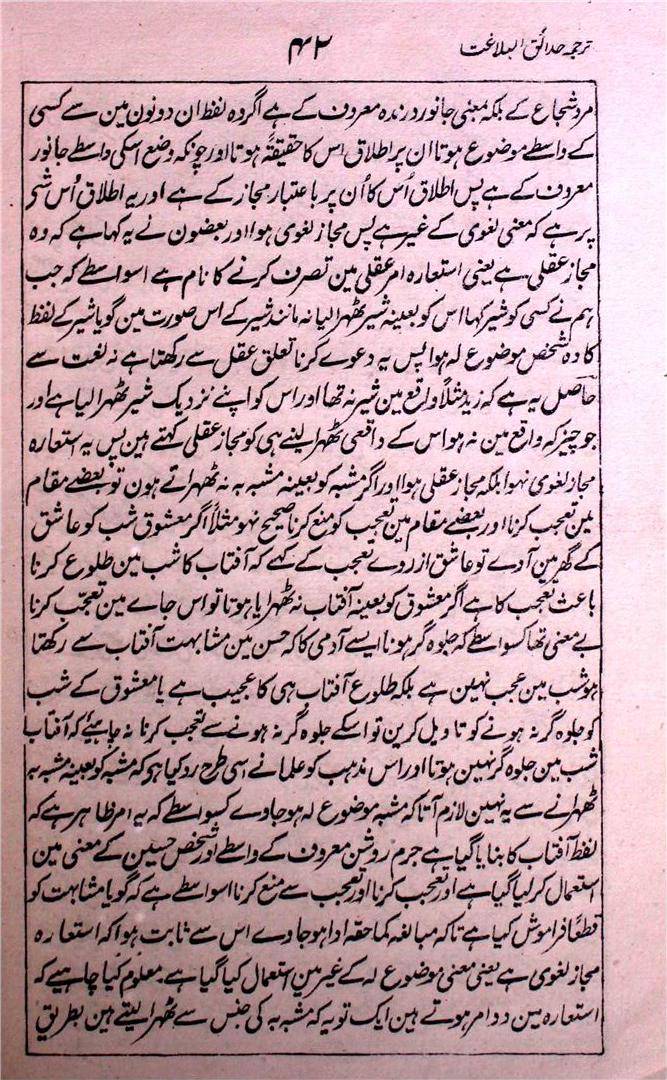 ترجمہ حدائق البلاغت
۴۲
مرد شجاع کے بلکہ معنی جانور درندہ معروف کے ہے اگر وہ لفظ ان دونون مین سے کسی
کے واسطے موضوع ہوتا ان پر اطلاق اس کا حقیقۃً ہوتا اور چونکہ وضع اسکی واسطے جانور
معروف کے ہے پس اطلاق اُس کا اُن پر باعتبار مجاز کے ہے اور یہ اطلاق اُس شے
پر ہے کہ معنی لغوی کے غیر ہے پس مجاز لغوی ہوا اور بعضون نے یہ کہا ہے کہ وہ
مجاز عقلی ہے یعنی استعارہ امر عقلی مین تصرف کرنے کا نام ہے اسواسطے کہ جب
ہم نے کسی کو شیر کہا اس کو بعینہ شیر ٹھہرا لیا نہ مانند شیر کے اس صورت مین گویا شیر کے لفظ
کا وہ شخص موضوع لہ ہوا پس یہ دعوے کرنا تعلق عقل سے رکھتا ہے نہ لغت سے
حاصل یہ ہے کہ زید مثلاً واقع مین شیر نہ تھا اور اس کو اپنے نزدیک شیر ٹھہرا لیا ہے اور
جو چیز کہ واقع مین نہ ہو اس کے واقعی ٹھہرا لینے ہی کو مجاز عقلی کہتے ہین پس یہ استعارہ
مجاز لغوی نہوا بلکہ مجاز عقلی ہوا اور اگر مشبہ کو بعینہ مشبہ بہ نہ ٹھہراتے ہون تو بعضے مقام
مین تعجب کرنا اور بعضے مقام مین تعجب کو منع کرنا صحیح نہو مثلاً اگر معشوق شب کو عاشق
کے گھر مین آوے تو عاشق ازروے تعجب کے کہے کہ آفتاب کا شب مین طلوع کرنا
باعث تعجب کا ہے اگر معشوق کو بعینہ آفتاب نہ ٹھہرایا ہوتا تو اس جاے مین تعجّب کرنا
بے معنی تھا کسواسطے کہ جلوہ گر ہونا ایسے آدمی کا کہ حسن مین مشابہت آفتاب سے رکھتا
ہو شب مین عجب نہین ہے بلکہ طلوع آفتاب ہی کا عجیب ہے یا معشوق کے شب
کو جلوہ گر نہ ہونے کو تاویل کرین تو اسکے جلوہ گر نہ ہونے سے تعجب کرنا نہ چاہیئے کہ آفتاب
شب مین جلوہ گر نہین ہوتا اور اس مذہب کو علما نے اسی طرح رد کیا ہو کہ مشبہ کو بعینہ مشبہ بہ
ٹھہرانے سے یہ نہین لازم آتا کہ مشبہ موضوع لہ ہو جاوے کسواسطے کہ یہ امر ظاہر ہے کہ
لفظ آفتاب کا بنایا گیا ہے جرم روشن معروف کے واسطے اور شخص حسین کے معنی مین
استعمال کر لیا گیا ہے اور تعجب کرنا اور تعجب سے منع کرنا اسواسطے ہے کہ گویا مشابہت کو
قطعاً فراموش کیا ہے تاکہ مبالغہ کما حقہ ادا ہو جاوے اس سے ثابت ہوا کہ استعارہ
مجاز لغوی ہے یعنی معنی موضوع لہ کے غیر مین استعمال کیا گیا ہے۔ معلوم کیا چاہیے کہ
استعارہ مین دو امر ہوتے ہین ایک تو یہ کہ مشبہ بہ کی جنس سے ٹھہرا لیتے ہین بطریق